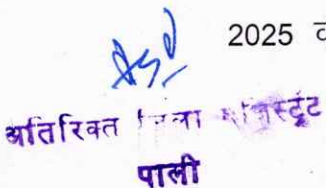 2025
अतिरिक्त जिला मजिस्ट्रेट
पाली